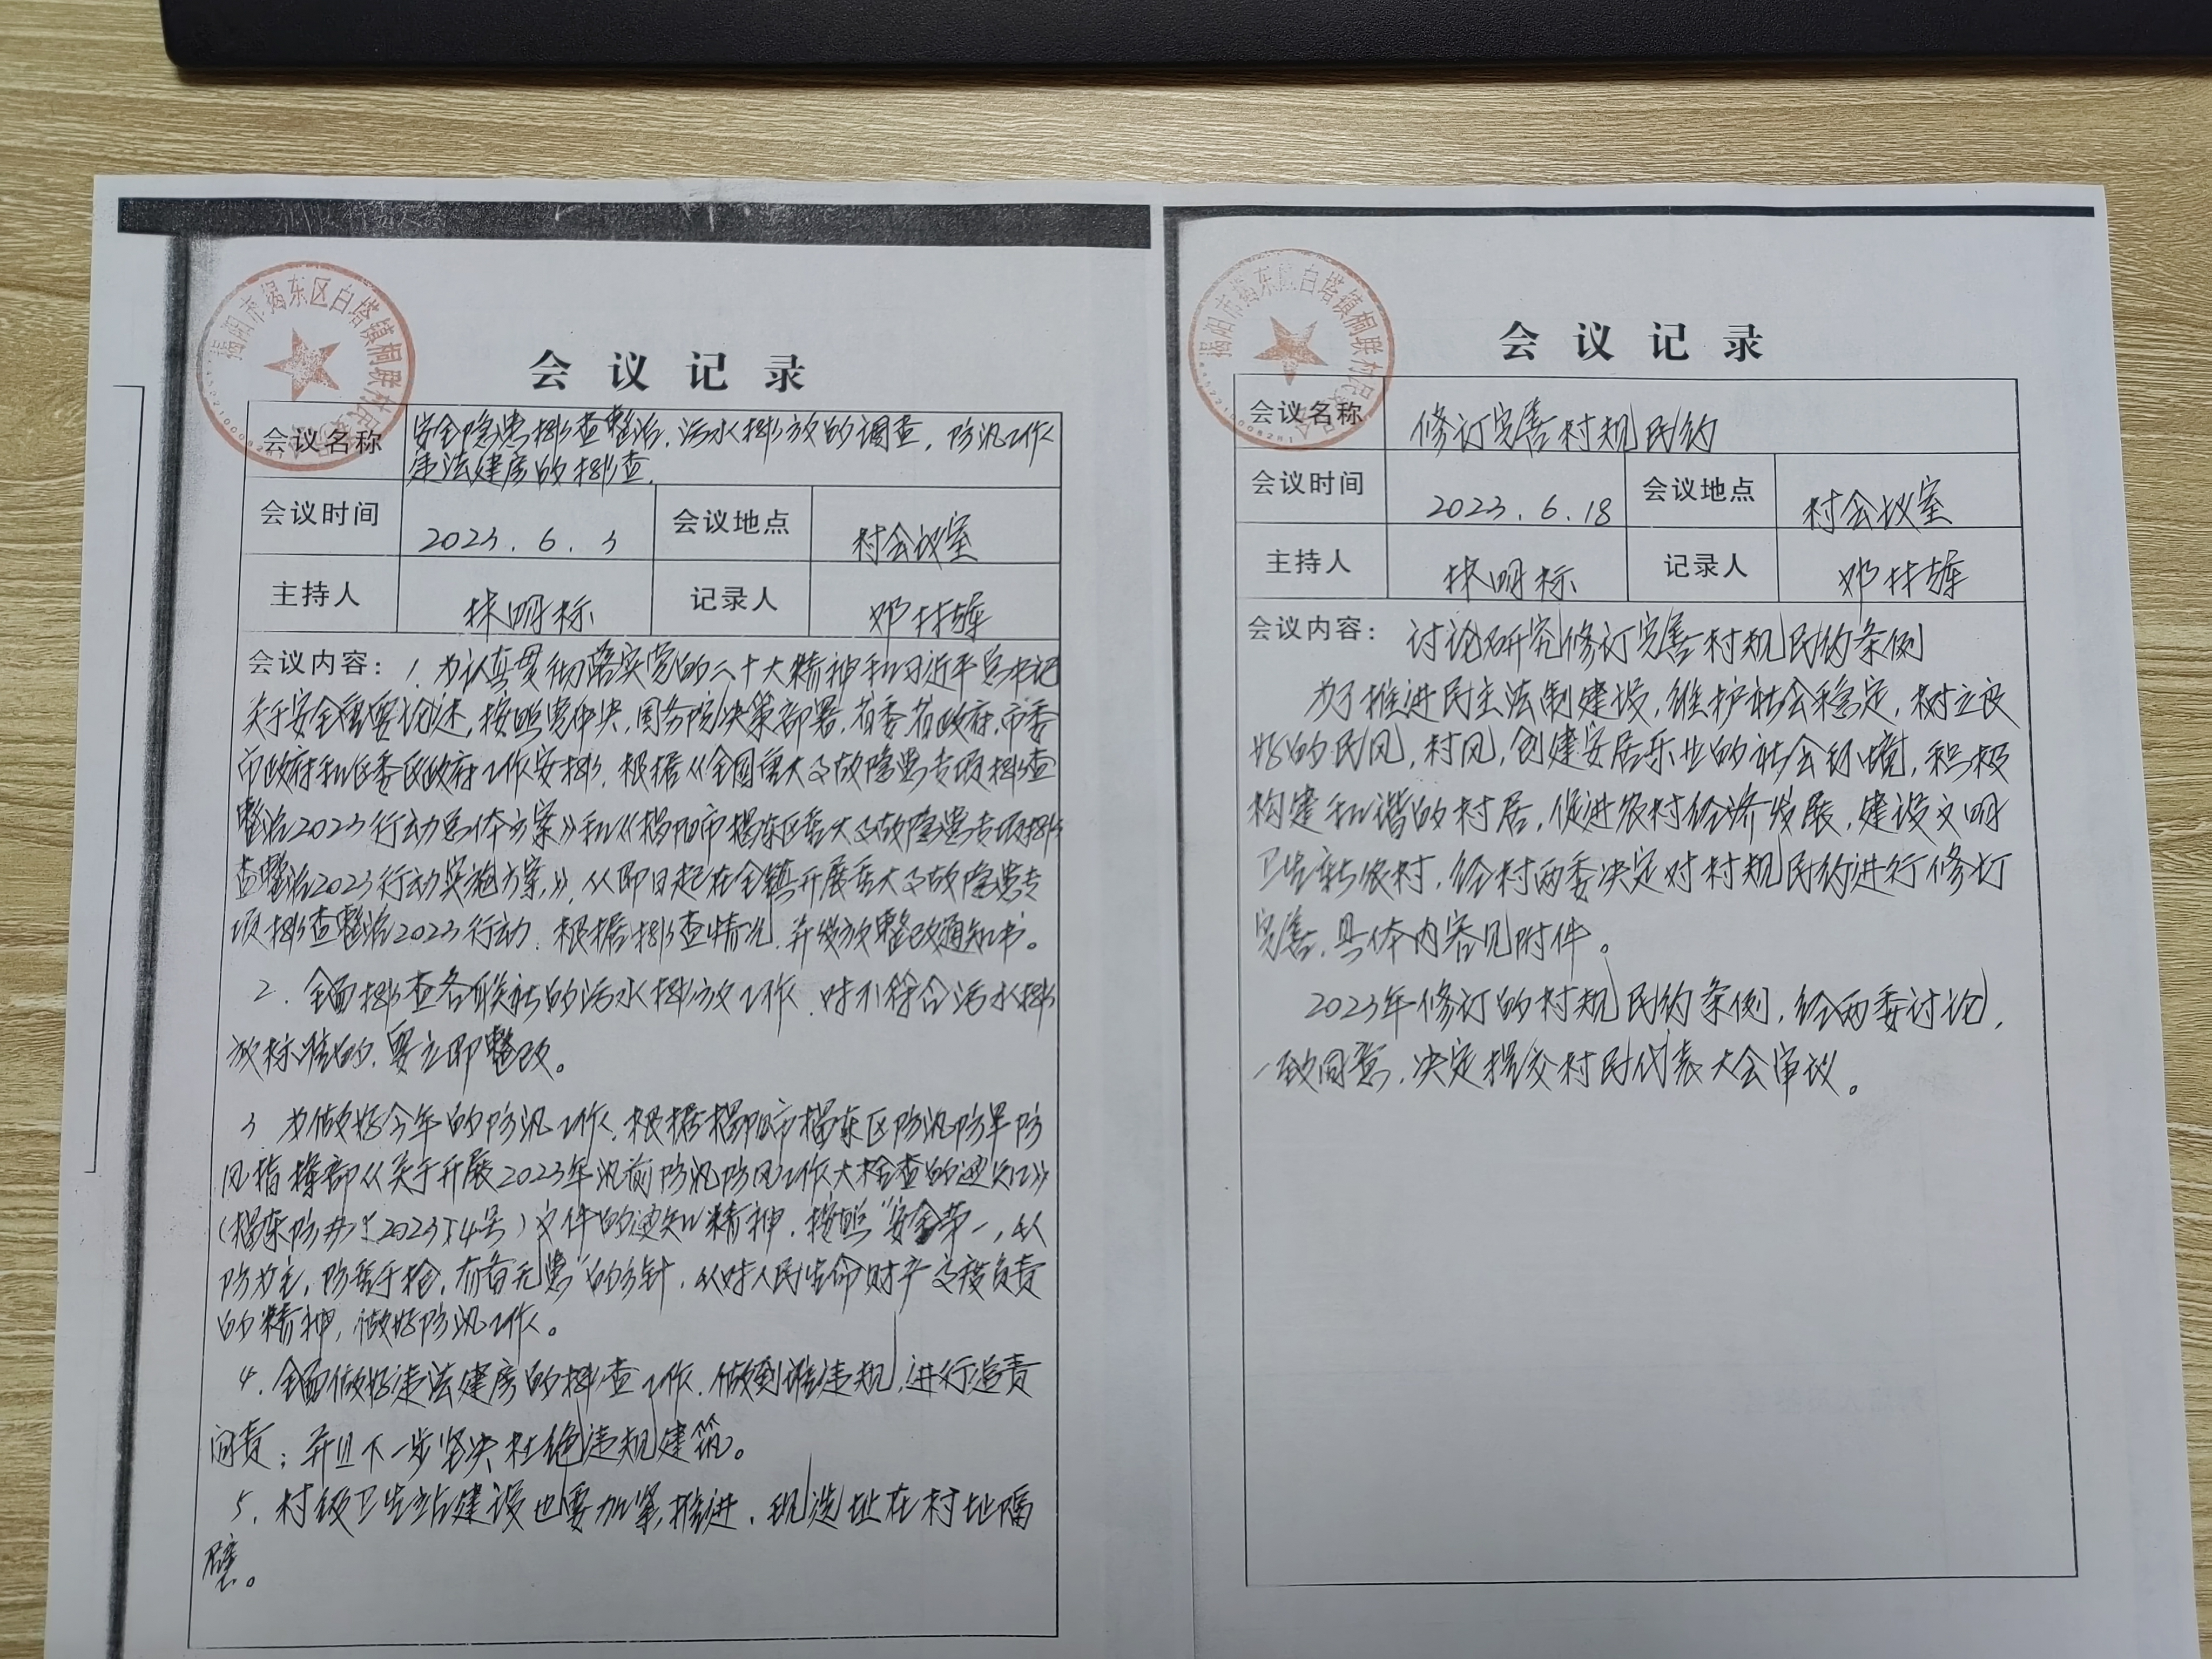 揭阳市揭东区白塔镇桐联村民
会议记录
会议名称
安全隐患排查整治,污水排放的调查,防汛工作
违法建房的排查.
会议时间
2023.6.3
会议地点
村会议室
主持人
林明标
记录人
邓林
会议内容:1.为认真贯彻落实党的二十大精神和习近平总书记
关于安全重要论述,按照党中央,国务院决策部署,省委省政府,市委
市政府和区委区政府工作安排,根据《全国重大事故隐患专项排查
整治2023行动总体方案》和《揭阳市揭东区重大事故隐患专项排
查整治2023行动实施方案》,从即日起在全镇开展重大事故隐患专
项排查整治2023行动.根据排查情况,并发放整改通知书。
2.全面排查各联社的污水排放工作.对不符合污水排
放标准的,要立即整改。
3.为做好今年的防汛工作,根据揭阳市揭东区防汛防旱防
风指挥部《关于开展2023年汛前防汛防风工作大检查的通知》
(揭东防〔2023〕4号)文件的通知精神,按照"安全第一,以
防为主,防重于抢,有备无患"的方针,从对人民生命财产高度负责
的精神,做好防汛工作。
4.全面做好违法建房的排查工作,做到谁违规,进行追责
问责;并且下一步坚决杜绝违规建筑。
5.村级卫生站建设也要加紧推进,现选址在村址隔
壁。
揭阳市揭东区白塔镇桐联村民
会议记录
会议名称
修订完善村规民约
会议时间
2023.6.18
会议地点
村会议室
主持人
林明标
记录人
邓林
会议内容:讨论研究修订完善村规民约条例
为了推进民主法制建设,维护社会稳定,树立良
好的民风,村风,创建安居乐业的社会环境,积极
构建和谐的村居,促进农村经济发展,建设文明
卫生新农村,经村两委决定对村规民约进行修订
完善,具体内容见附件。
2023年修订的村规民约条例,经两委讨论,
一致同意,决定提交村民代表大会审议。